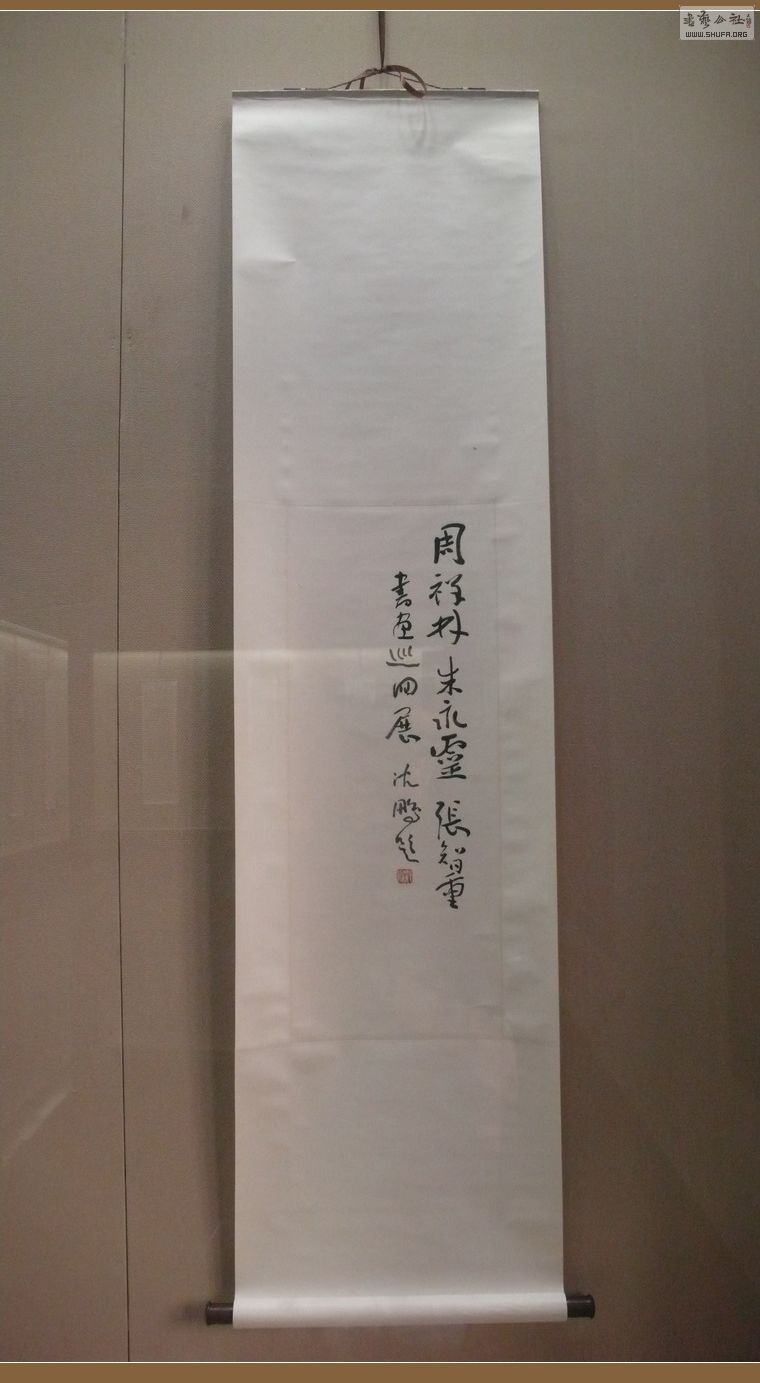 周祥林 朱永靈 張智重
書画巡回展 沈鵬題
書藝公社
WWW.SHUFA.ORG